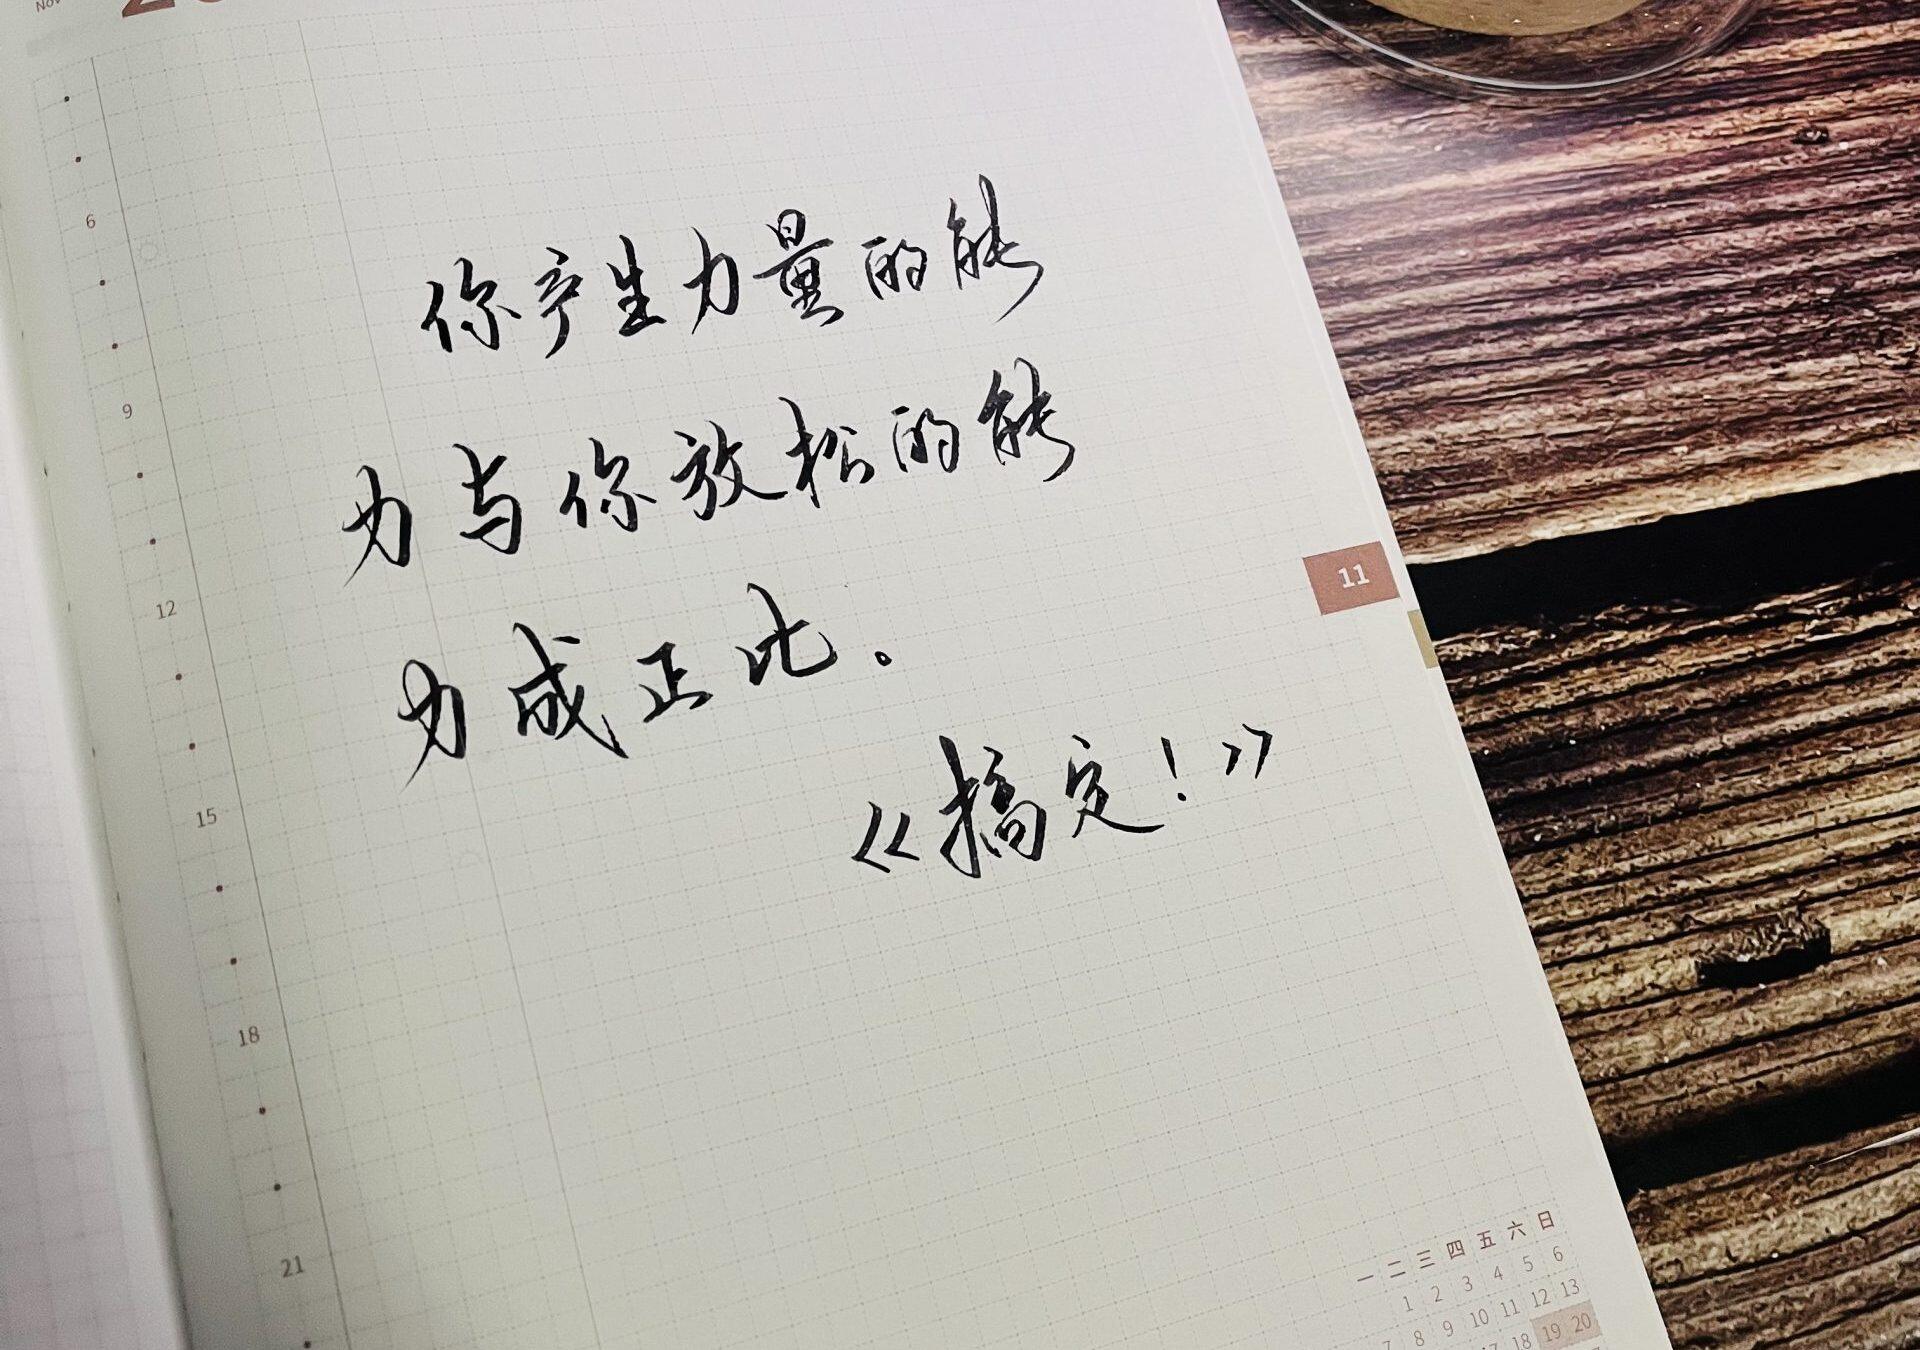 Nov
6
9
12
15
18
21
你产生力量的能
力与你放松的能
力成正比。
《搞定！》
11
一 二 三 四 五 六 日
1 2 3 4 5 6
7 8 9 10 11 12 13
18 19 20